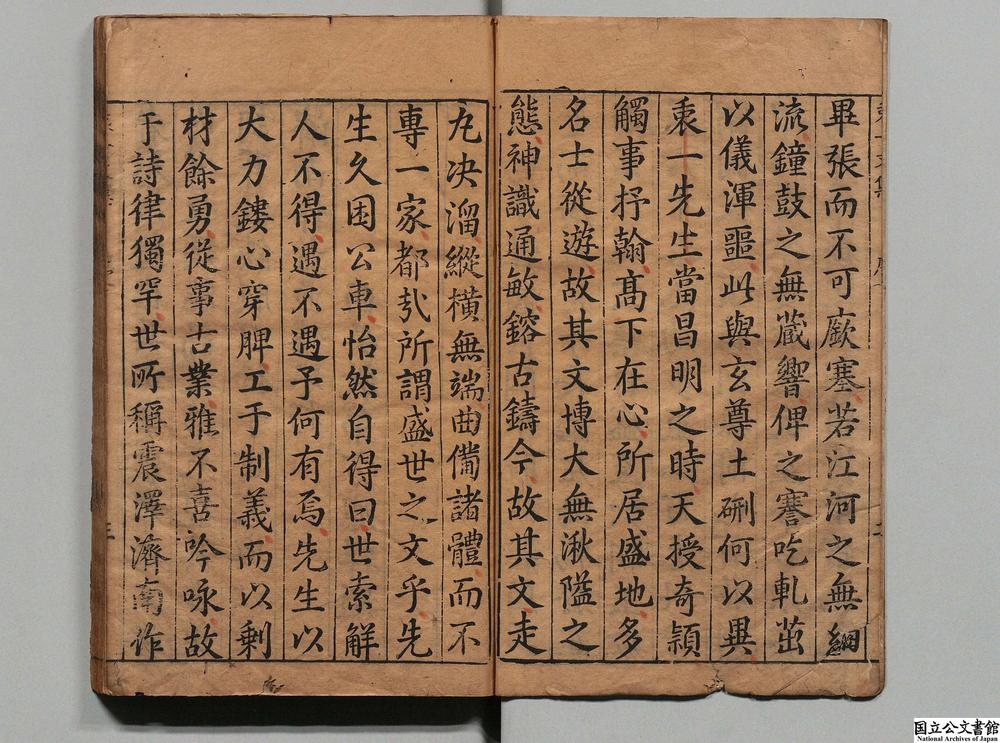 畢張而不可厥蹇若江河之無綱
流鐘鼓之無蔵響俾之謇吃軋茁
以儀渾噩此與玄尊土硎何以異
秉一先生當昌明之時天授奇穎
觸事抒翰高下在心所居盛地多
名士從遊故其文博大無湫隘之
態神識通敏鎔古鑄今故其文走
丸决溜縱橫無端曲備諸體而不
專一家都㢤所謂盛世之文乎先
生久困公車怡然自得曰世索解
人不得遇不遇予何有焉先生以
大力鏤心穿脾工于制義而以剰
材餘勇從事古業雅不喜吟咏故
于詩律獨罕世所稱震澤濟南作
国立公文書館
National Archives of Japan